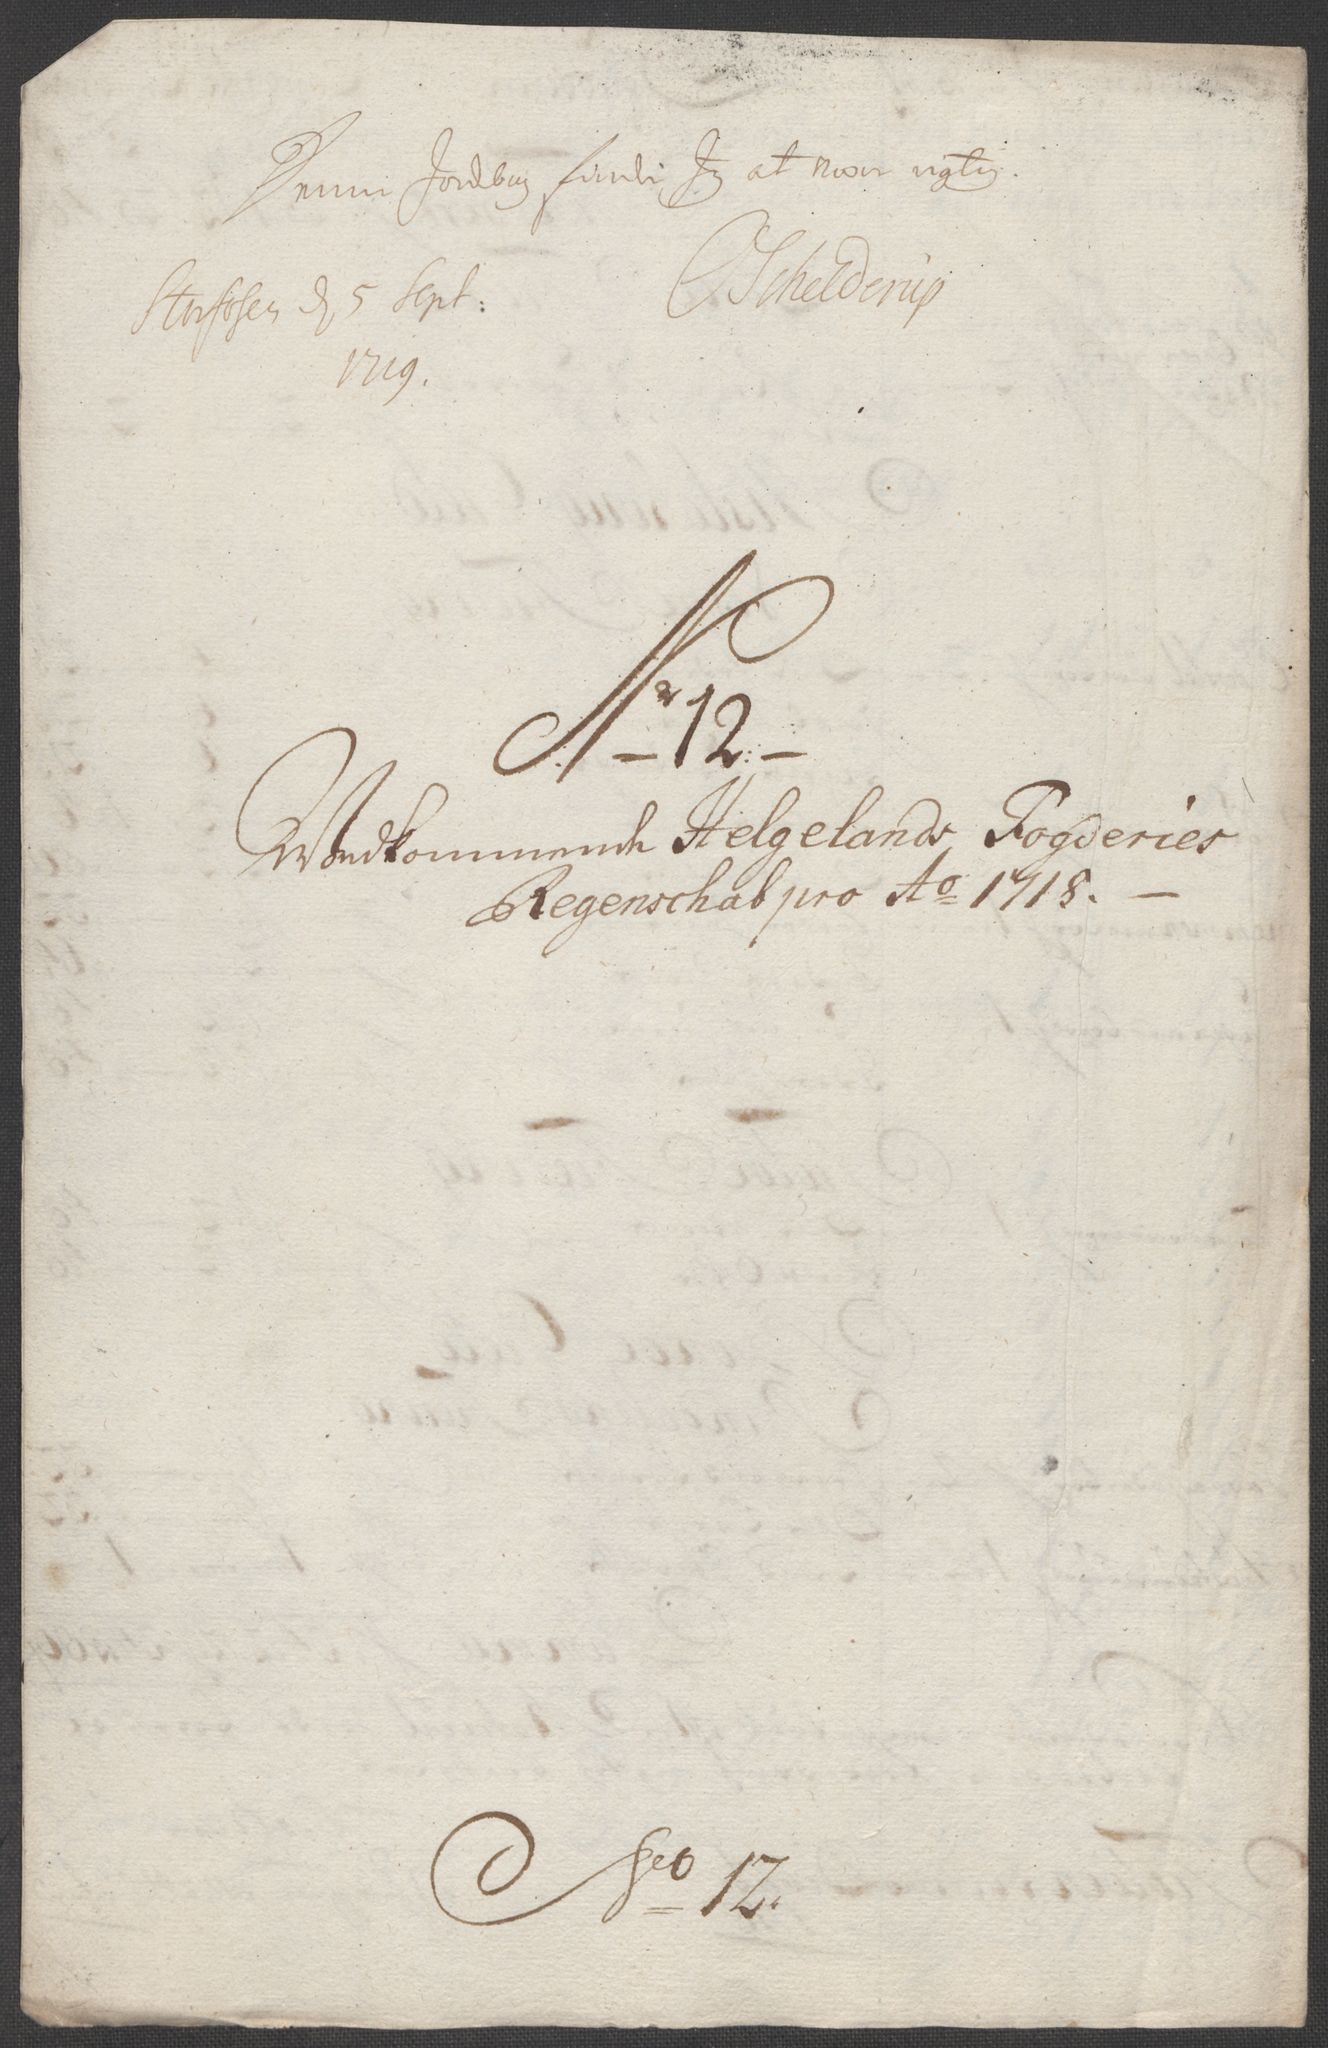 Denne Jordbog finder Jeg at være rigtig.
OSchelderup
d 5 Sept:
1719.
Nr 12.
Wedkommende Helgelands Fogderies
Regenschab pro Ao 1718.
12.